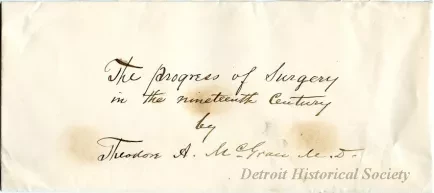 The Progress of Surgery
in the nineteenth Century
by
Theodore A. McGraw M.D.
Detroit Historical Society